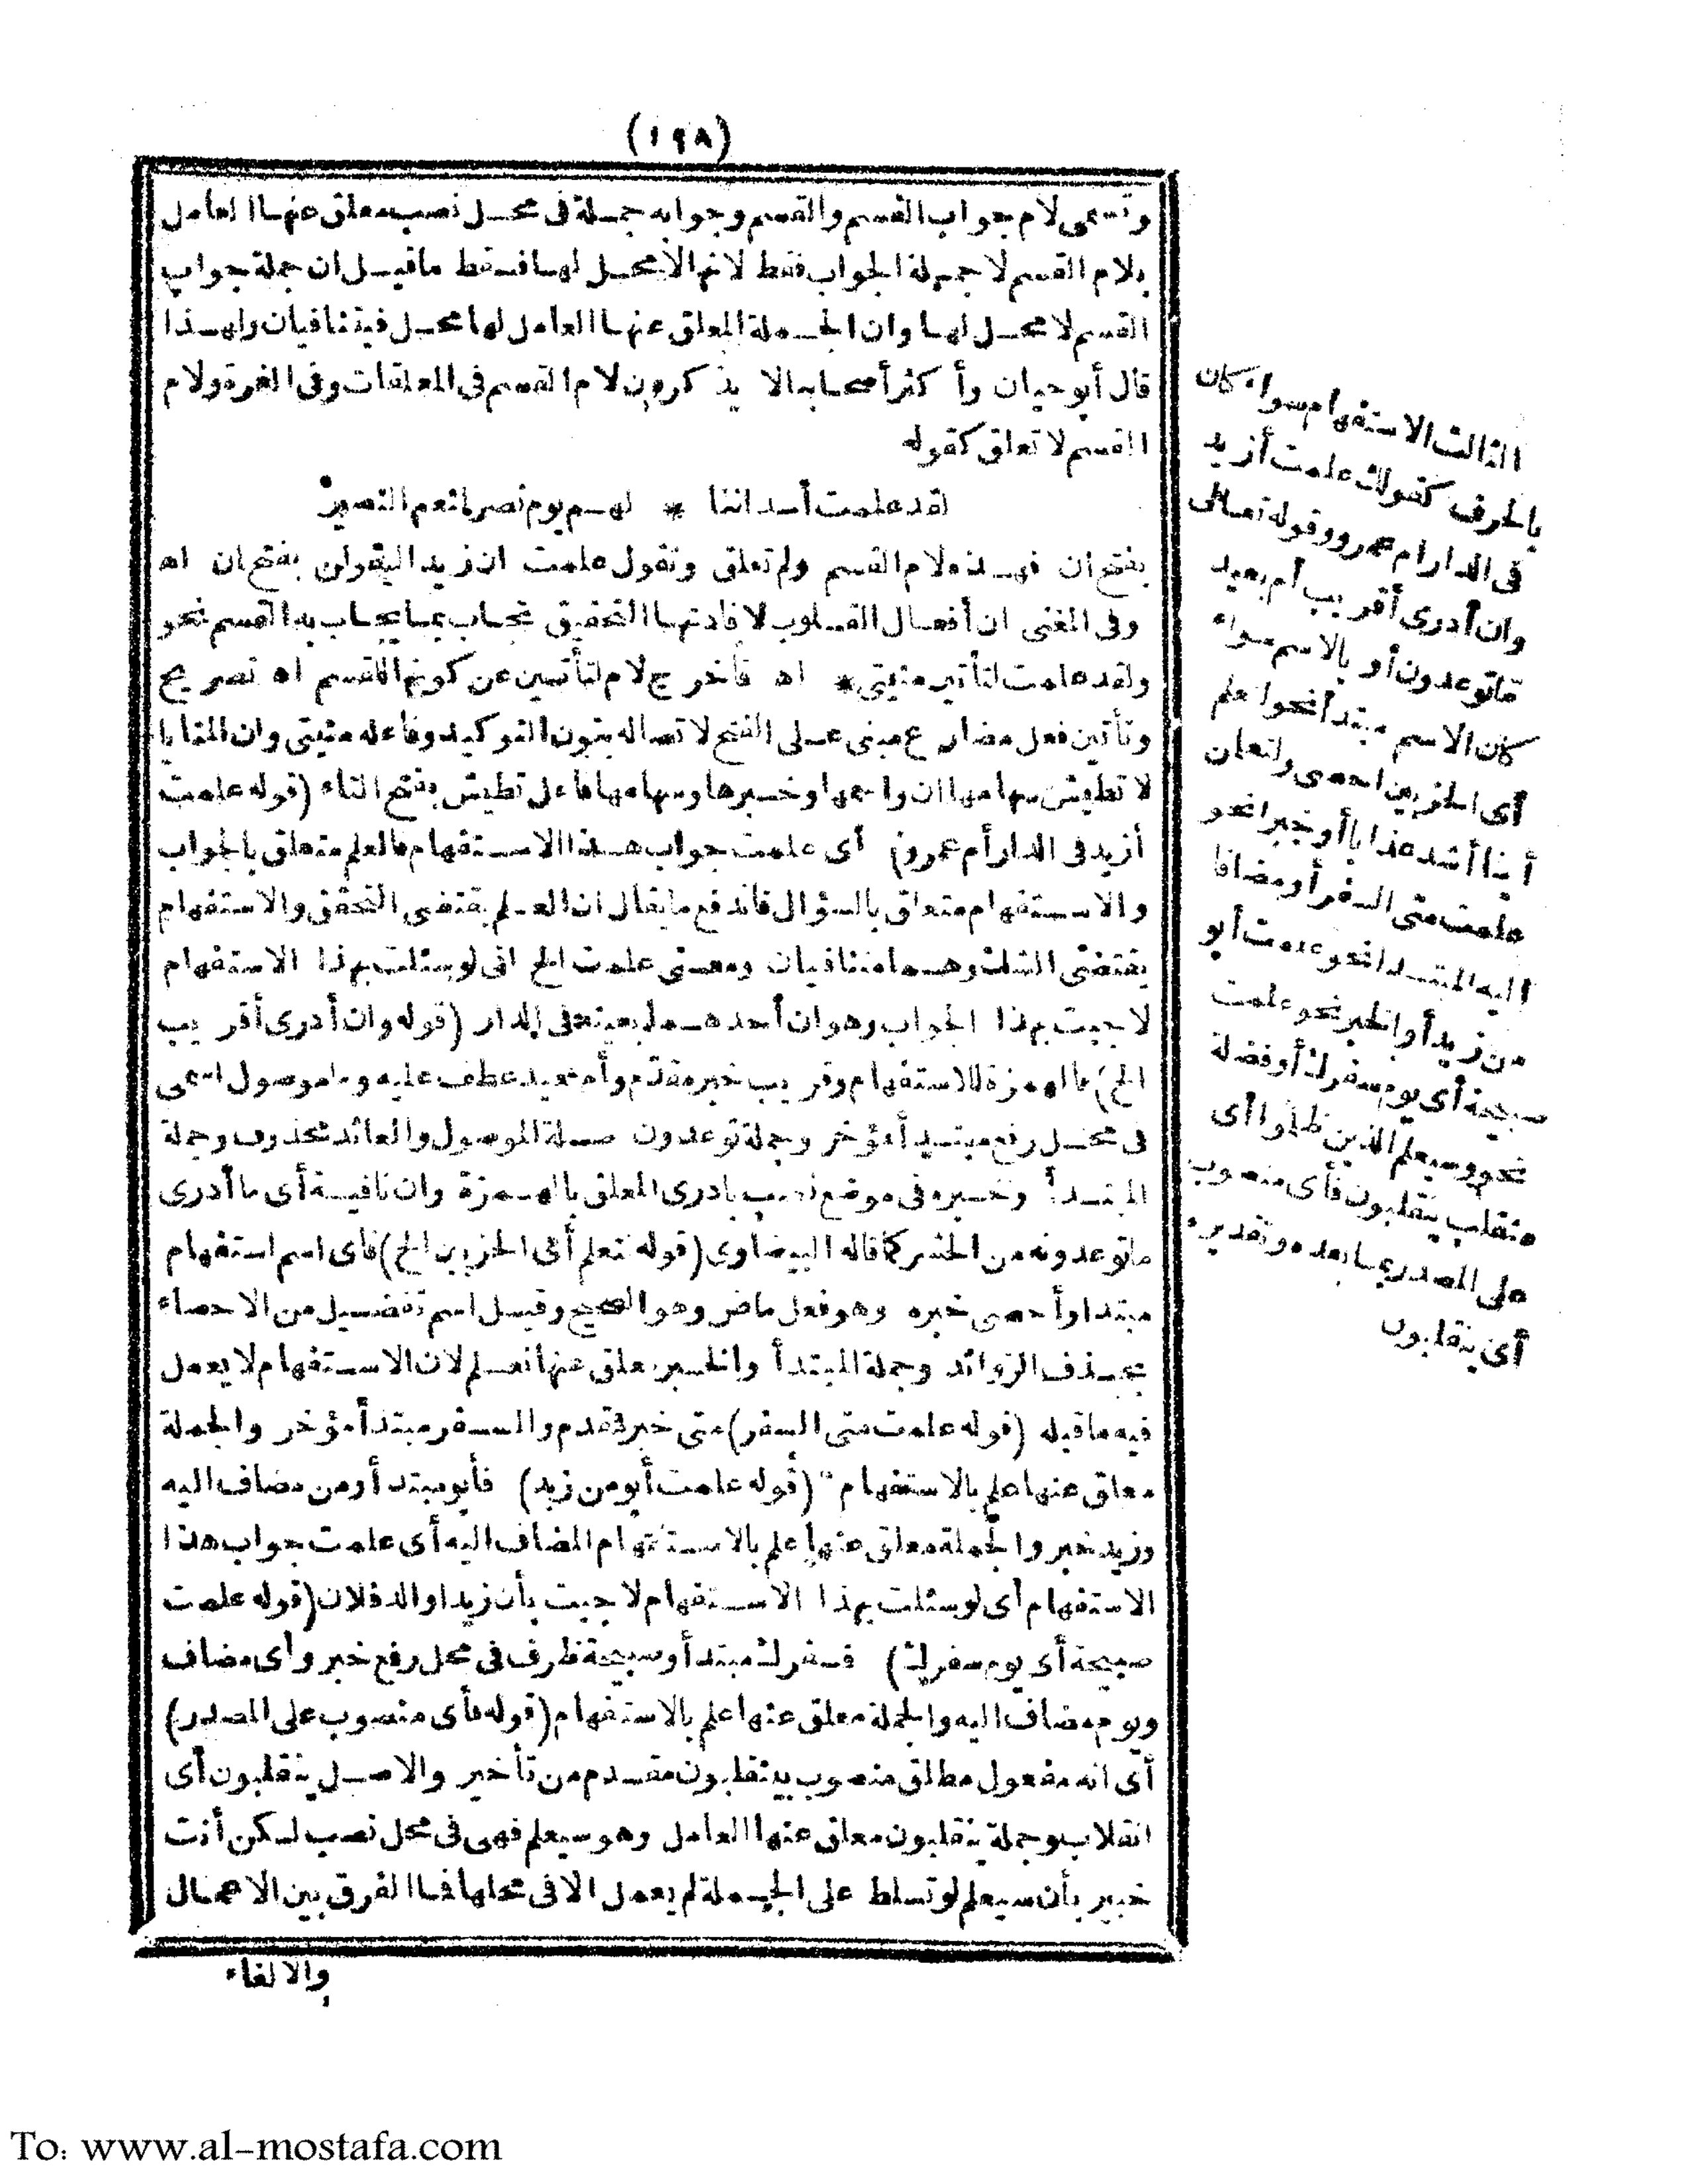 (١٩٨)
وتسمى لام جواب القسم والقسم وجوابه جملة فى محل نصب معلق عنها العامل
بلام القسم لا جملة الجواب فقط لانها لا محل لها فسقط ما قيل ان جملة جواب
القسم لا محل لها وان الجملة المعلق عنها العامل لها محل فيتنافيان ولهذا
قال أبو حيان وأكثر أصحابه الا يذكرون لام القسم فى المعلقات وفى الغرة ولام
القسم لا تعلق كقوله
لقد علمت أسد اننا * لهم يوم نصر لنعم النصير
بفتح ان فهذه لام القسم ولم تعلق وتقول علمت ان زيدا ليقولن بفتح ان اه
وفى المغنى ان أفعال القلوب لافادتها التحقيق تجاب بما يجاب به القسم نحو
ولقد علمت لتأتين منيتى * اه فأخرج لام لتأتين عن كونها للقسم اه تصريح
وتأتين فعل مضارع مبنى على الفتح لاتصاله بنون التوكيد وفاعله منيتى وان المنايا
لا تطيش سهامها ان واسمها وخبرها وسهامها فاعل تطيش بفتح التاء (قوله علمت
أزيد فى الدار أم عمرو) أى علمت جواب هذا الاستفهام فالعلم متعلق بالجواب
والاستفهام متعلق بالسؤال فاندفع ما يقال ان العلم يقتضى التحقق والاستفهام
يقتضى الشك وهما متنافيان ومعنى علمت الخ انى لو سئلت بهذا الاستفهام
لاجيت بهذا الجواب وهو ان أحدهما بعينه فى الدار (قوله وان أدرى أقريب
الخ) فالهمزة للاستفهام وقريب خبر مقدم وأم بعيد عطف عليه وما موصول اسمى
فى محل رفع مبتدأ مؤخر وجملة توعدون صلة الموصول والعائد محذوف وجملة
المبتدأ وخبره فى موضع نصب بادرى المعلق بالهمزة وان نافية أى ما أدرى
ما توعدونه من الحشر كما قاله البيضاوى (قوله نتعلم أى الحزبين الخ) فاى اسم استفهام
مبتدا وأحصى خبره وهو فعل ماض وهو الصحيح وقيل اسم تفضيل من الاحصاء
بحذف الزوائد وجملة المبتدأ والخبر معلق عنها نعلم لان الاستفهام لا يعمل
فيه ما قبله (قوله علمت متى السفر) متى خبر مقدم والسفر مبتدأ مؤخر والجملة
معلق عنها علم بالاستفهام (قوله علمت أبو من زيد) فأبو مبتدأ ومن مضاف اليه
وزيد خبر والجملة معلق عنها علم بالاستفهام المضاف اليه أى علمت جواب هذا
الاستفهام أى لو سئلت بهذا الاستفهام لاجبت بأن زيدا والد فلان (قوله علمت
صبيحة أى يوم سفرك) فسفرك مبتدأ وصبيحة ظرف فى محل رفع خبر وأى مضاف
ويوم مضاف اليه والجملة معلق عنها علم بالاستفهام (قوله فأى منصوب على المصدر)
أى انه مفعول مطلق منصوب بينقلبون مقدم من تأخير والاصل ينقلبون أى
انقلاب وجملة ينقلبون معلق عنها العامل وهو سيعلم فهى فى محل نصب لكن أنت
خبير بأن سيعلم لو تسلط على الجملة لم يعمل الا فى محلها فما الفرق بين الاعمال
والالغاء
الثالث الاستفهام سواء كان
بالحرف كقولك علمت أزيد
فى الدار ام عمرو وقوله تعالى
وان أدرى أقريب أم بعيد
ما توعدون أو بالاسم سواء
كان الاسم مبتدأ نحو لنعلم
أى الحزبين احصى ولتعلمن
أينا أشد عذابا أو خبرا نحو
علمت متى السفر أو مضافا
اليه المبتدا نحو علمت أبو
من زيد أو الخبر نحو علمت
صبيحة أى يوم سفرك أو فضلة
نحو وسيعلم الذين ظلموا أى
منقلب ينقلبون فأى منصوب
على المصدر بما بعده وتقديره
أى ينقلبون
To: www.al-mostafa.com